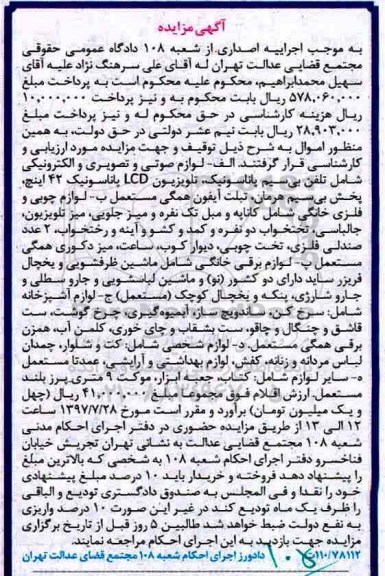 آگهی مزایده
به موجب اجراییه اصداری از شعبه ۱۰۸ دادگاه عمومی حقوقی
مجتمع قضایی عدالت تهران له آقای علی سرهنگ نژاد علیه آقای
سهیل محمدابراهیم، محکوم علیه محکوم است به پرداخت مبلغ
۵۷۸,۰۶۰,۰۰۰ ریال بابت محکوم به و نیز پرداخت ۱۰,۰۰۰,۰۰۰
ریال هزینه کارشناسی در حق محکوم له و نیز پرداخت مبلغ
۲۸,۹۰۳,۰۰۰ ریال بابت نیم عشر دولتی در حق دولت، به همین
منظور اموال به شرح ذیل توقیف و جهت مزایده مورد ارزیابی و
کارشناسی قرار گرفتند. الف- لوازم صوتی و تصویری و الکترونیکی
شامل تلفن بی‌سیم پاناسونیک، تلویزیون LCD پاناسونیک ۴۲ اینچ،
پخش بی‌سیم هرمان، تبلت آیفون همگی مستعمل ب- لوازم چوبی و
فلزی خانگی شامل کاناپه و مبل تک نفره و میز جلویی، میز تلویزیون،
جالباسی، تختخواب دو نفره و کمد و کشو و آینه و رختخواب، ۲ عدد
صندلی فلزی، تخت چوبی، دیوار کوب، ساعت، میز دکوری همگی
مستعمل پ- لوازم برقی خانگی شامل ماشین ظرفشویی و یخچال
فریزر ساید دارای دو کشور (نو) و ماشین لباسشویی و جارو سطلی و
جارو شارژی، پنکه و یخچال کوچک (مستعمل) ج- لوازم آشپزخانه
شامل: سرخ کن، ساندویچ ساز، آبمیوه‌گیری، چرخ گوشت، ست
قاشق و چنگال و چاقو، ست بشقاب و چای خوری، کلمن آب، همزن
برقی همگی مستعمل. د- لوازم شخصی شامل: کت و شلوار، چمدان
لباس مردانه و زنانه، کفش، لوازم بهداشتی و آرایشی، عمدتا مستعمل
ه- سایر لوازم شامل: کتاب، جعبه ابزار، موکت ۹ متری پرز بلند
مستعمل. ارزش اقلام فوق مجموعا مبلغ ۴۱,۰۰۰,۰۰۰ ریال (چهل
و یک میلیون تومان) برآورد و مقرر است مورخ ۱۳۹۷/۷/۲۸ ساعت
۱۲ الی ۱۳ از طریق مزایده حضوری در دفتر اجرای احکام مدنی
شعبه ۱۰۸ مجتمع قضایی عدالت به نشانی تهران تجریش خیابان
فناخسرو دفتر اجرای احکام شعبه ۱۰۸ به شخصی که بالاترین مبلغ
را پیشنهاد دهد فروخته و خریدار باید ۱۰ درصد مبلغ پیشنهادی
خود را نقدا و فی المجلس به صندوق دادگستری تودیع و الباقی
را ظرف یک ماه تودیع کند در غیر این صورت ۱۰ درصد واریزی
به نفع دولت ضبط خواهد شد طالبین ۵ روز قبل از تاریخ برگزاری
مزایده جهت بازدید به این اجرای احکام مراجعه نمایند.
۱۱۰/۷۸۱۱۲ دادورز اجرای احکام شعبه ۱۰۸ مجتمع قضای عدالت تهران